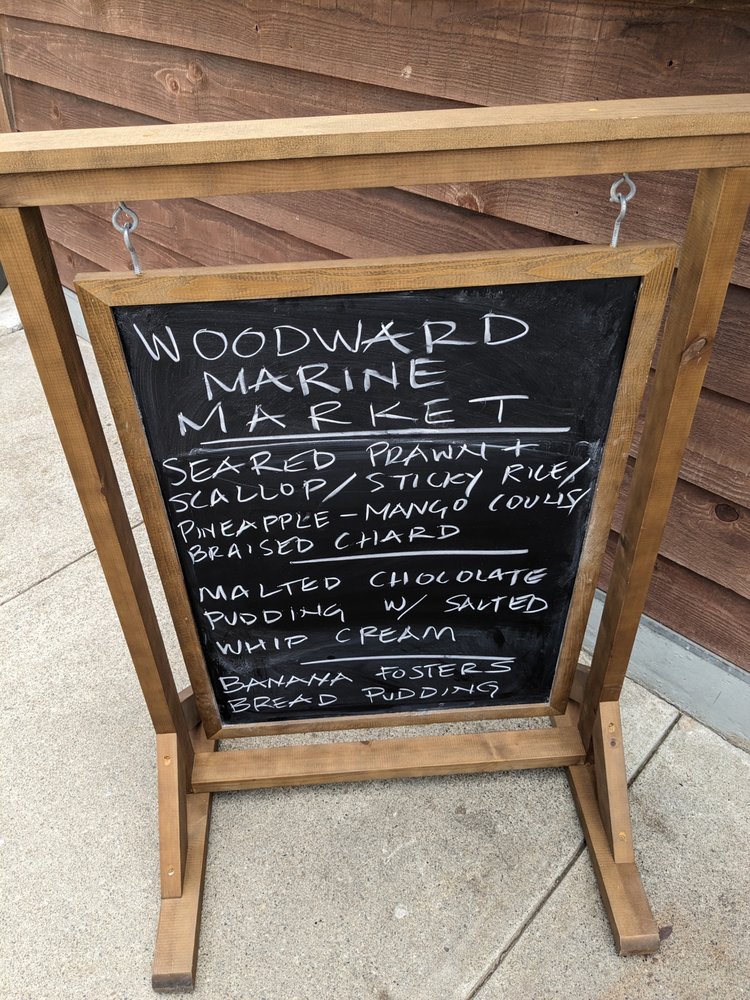 WOODWARD
MARINE
MARKET
SEARED PRAWN +
SCALLOP/STICKY RICE/
PINEAPPLE-MANGO COULIS/
BRAISED CHARD
MALTED CHOCOLATE
PUDDING W/ SALTED
WHIP CREAM
BANANA FOSTERS
BREAD PUDDING